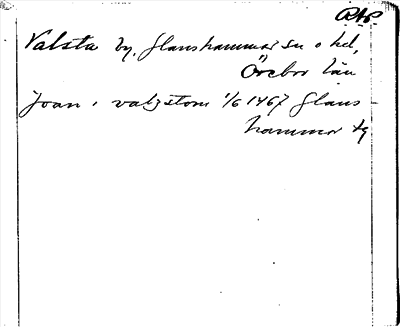 RAp.
Valsta by, Glanshammar sn o hd,
Örebro län
Joan i valzstom 1/6 1467 Glans-
hammar tg